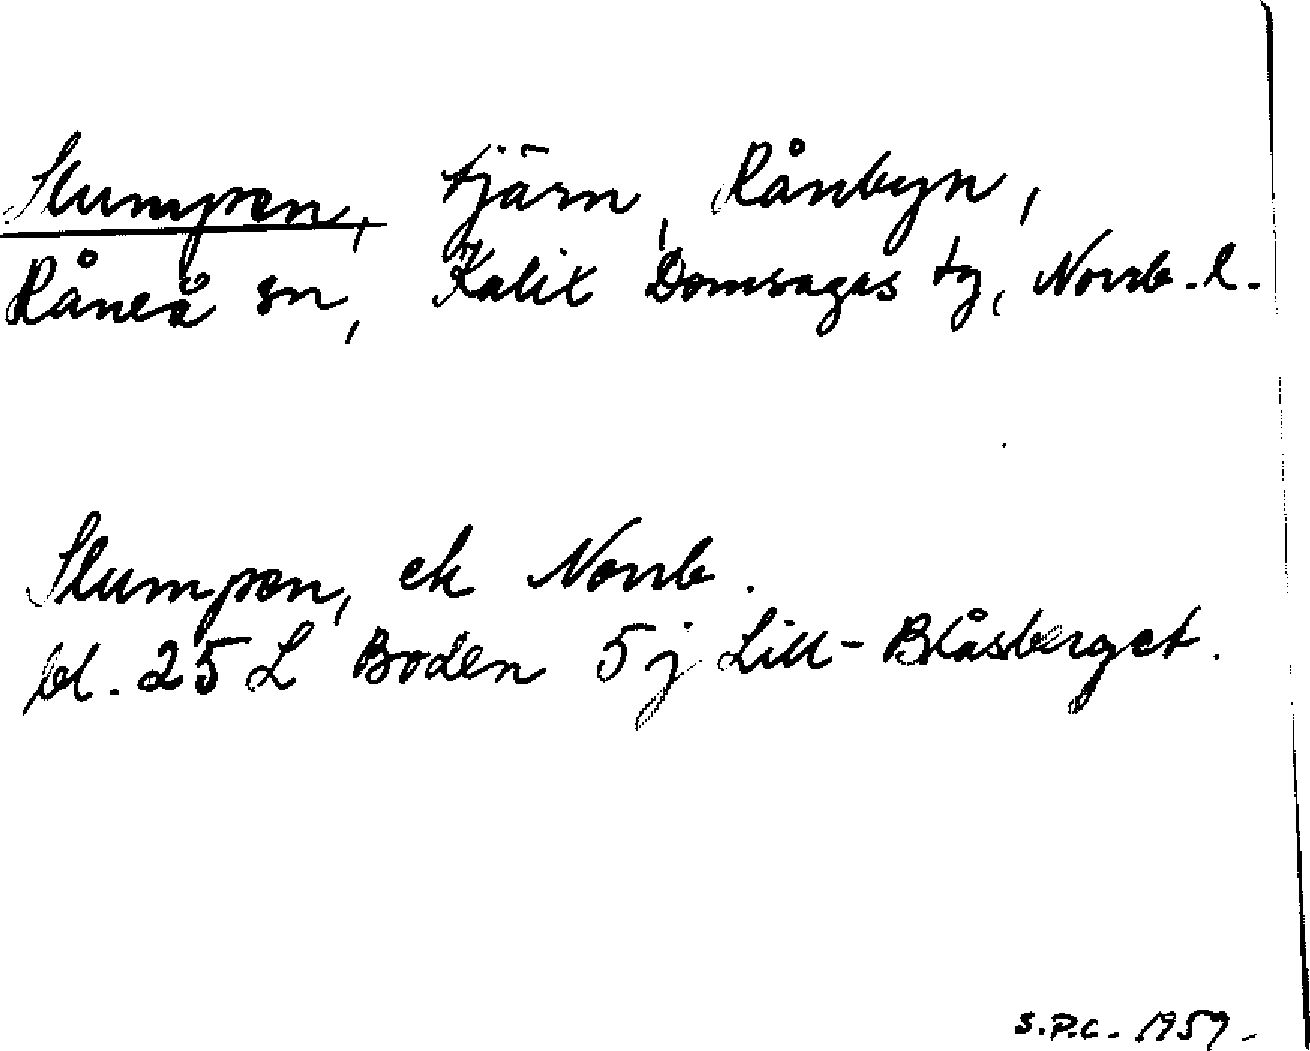 Slumpen, tjärn, Rånbyn,
Råneå sn, Kalix Domsagas tg, Norrb. l.
Slumpen, ek Norrb.
bl. 25 L Boden 5j Lill-Blåsberget.
S.P.C. 1959.